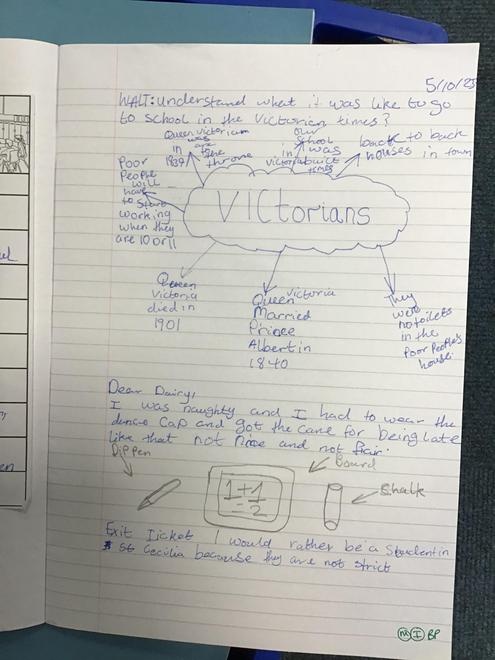 5/10/23
WALT: understand what it was like to go
to school in the Victorian times?
Queen victoriam
was
in are
1837 the
throne
our
School
in was
victoria built
times
back to back
houses in town
Poor
People
will
have
to start
working
when they
are 10 or 11
VICtorians
Queen
Victoria
died in
1901
Queen victoria
Married
Prince
Albert in
1840
They
were
no toilets
in the
Poor People's
house
Dear Dairy,
I was naughty and I had to wear the
dunce Cap and got the cane for being late
like that not Nice and not fair.
Dip pen
Board
1+1
=2
Shalk
Exit Ticket I would rather be a Student in
St Cecilia because they are not strict
I BP